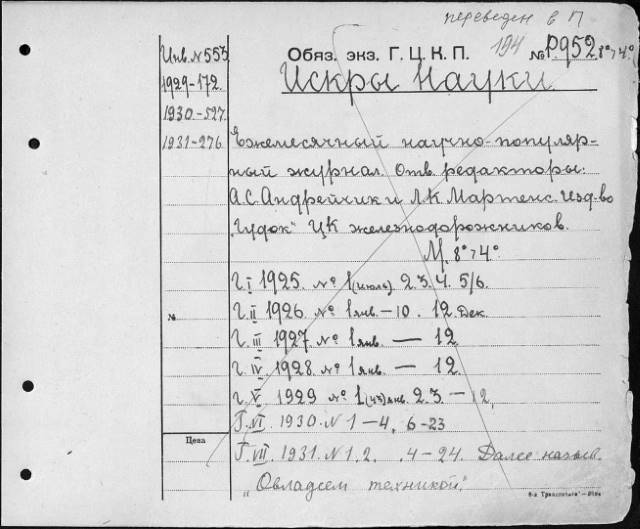 переведен в П
Инв. N 553
1929-172.
1930-527.
1931-276.
Обяз. экз. Г.Ц.К.П. 194 № P.952 8°>4°.
Искры Науки
Ежемесячный научно-популяр-
ный журнал. Отв. редакторы:
А.С. Андрейчик и Л.К. Мартенс. Изд-во
„Гудок" ЦК железнодорожников.
М. 8°>4°
Г. I 1925. № 1 (июль). 2. 3. 4. 5/6.
№ Г. II 1926. № 1 янв. – 10. 12. Дек
Г. III 1927. № 1 янв. — 12
Г. IV. 1928. № 1 янв. — 12.
Г. V. 1929 № 1 (43) янв. 2. 3. — 12,
Г. VI. 1930. N 1 – 4, 6 – 23
Цена
Г. VII. 1931. N 1. 2. .4 – 24. Далее назыв.
„Овладеем техникой".